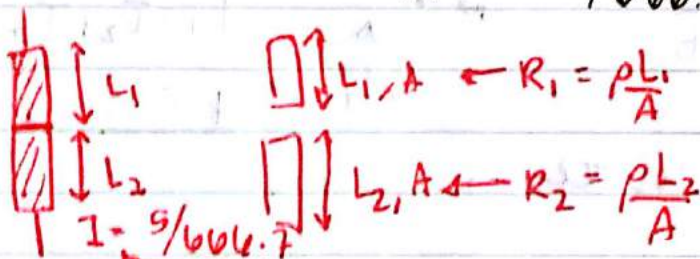 L₁
L₁, A ← R₁ = ρL₁/A
L₂
L₂, A ← R₂ = ρL₂/A
I = 5/666.7